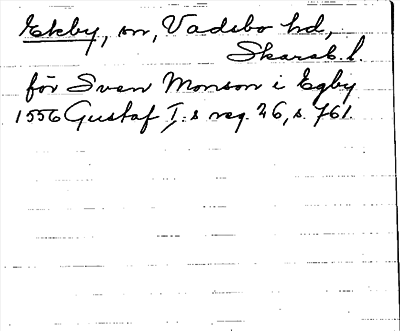 Ekby, sn, Vadsbo hd,
Skarab. l.
för Sven Monson i Egby
1556 Gustaf I:s reg. 26, s. 761.